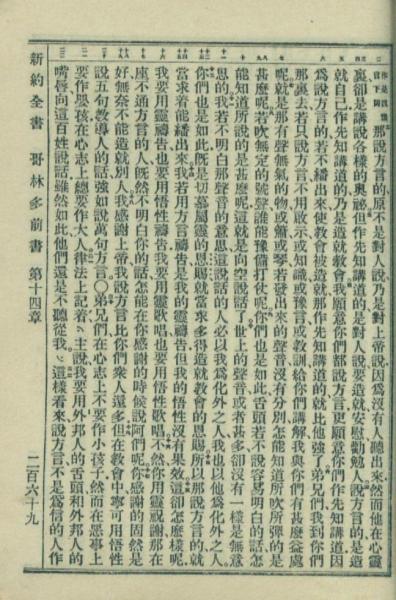 那說方言的、原不是對人說、乃是對上帝說、因爲沒有人聽出來、然而他在心靈
裏、卻是講說各樣的奧祕、但作先知講道的、是對人說、要造就安慰勸勉人、說方言的是造
就自己、作先知講道的、乃是造就教會、我願意你們都說方言、更願意你們作先知講道、因
爲說方言的、若不繙出來、使教會被造就、那作先知講道的、就比他強了、弟兄們、我到你們
那裏去、若只說方言、不用啟示、或知識、或豫言、或教訓、給你們講解、我與你們有甚麼益處
呢、就是那有聲無氣的物、或簫、或琴、若發出來的聲音、沒有分別、怎能知道所吹所彈的是
甚麼呢、若吹無定的號聲、誰能豫備打仗呢、你們也是如此、舌頭若不說容易明白的話、怎
能知道所說的是甚麼呢、這就是向空說話了、世上的聲音、或者甚多、卻沒有一樣是無意
思的、我若不明白那聲音的意思、這說話的人必以我爲化外之人、我也以他爲化外之人、
你們也是如此、旣是切慕屬靈的恩賜、就當求多得造就教會的恩賜、所以那說方言的、就
當求着能繙出來、我若用方言禱告、是我的靈禱告、但我的悟性沒有果效、這卻怎麼樣呢、
我要用靈禱告、也要用悟性禱告、我要用靈歌唱、也要用悟性歌唱、不然、你用靈祝謝、那在
座不通方言的人、旣然不明白你的話、怎能在你感謝的時候說阿們呢、你感謝的固然是
好、無奈不能造就別人、我感謝上帝、我說方言比你們衆人還多、但在教會中、寧可用悟性
說五句教導人的話、強如說萬句方言、○弟兄們、在心志上不要作小孩子、然而在惡事上
要作嬰孩、在心志上總要作大人、律法上記着、主說、我要用外邦人的舌頭、和外邦人的
嘴脣、向這百姓說話、雖然如此、他們還是不聽從我、這樣看來、說方言、不是爲信的人作
新約全書 哥林多前書 第十四章 二百六十九